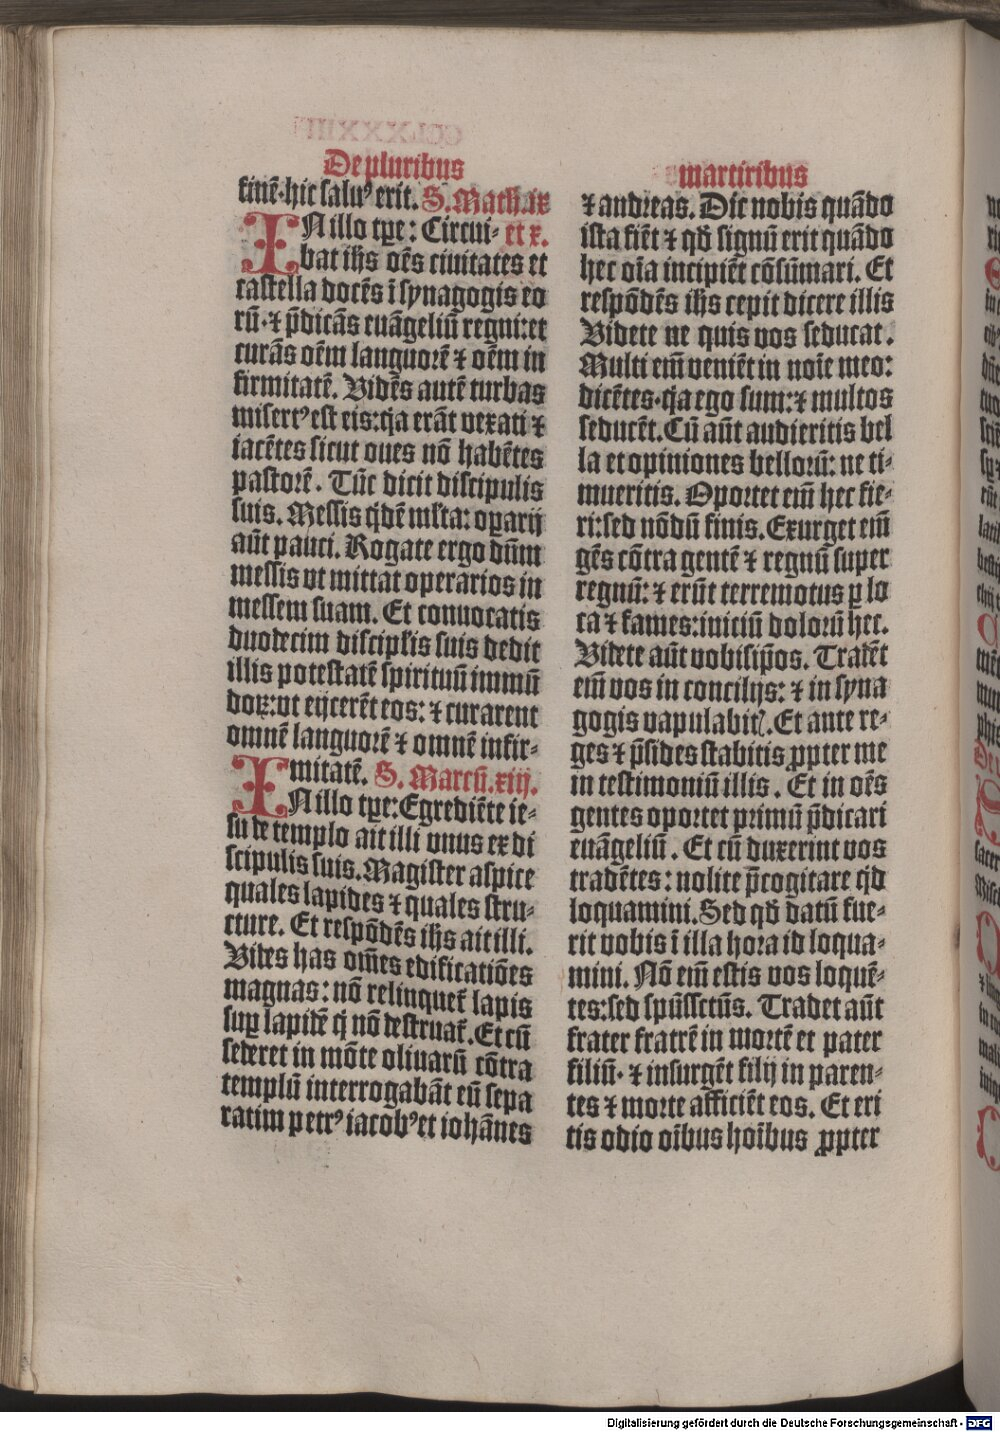 De pluribus
finē·hic saluꝰ erit. S. Math.ix
IN illo tꝑe: Circui⸗ et x.
bat ihs oēs ciuitates et
castella docēs ī synagogis eo
rū·⁊ p̄dicās euāgeliū regni:et
curās oēm languorē ⁊ oēm in
firmitatē. Vidēs autē turbas
misertꝰ est eis:q̇a erāt vexati ⁊
iacētes sicut oues nō habētes
pastorē. Tūc dicit discipulis
suis. Messis q̇dē mlta: oꝑarij
aūt pauci. Rogate ergo dūm
messis vt mittat operarios in
messem suam. Et conuocatis
duodecim discipłis suis dedit
illis potestatē spirituū immū
doꝝ:vt eijcerēt eos: ⁊ curarent
omnē languorē ⁊ omnē infir⸗
mitatē. S. Marcū.xiij.
IN illo tꝑe: Egrediēte ie⸗
su de templo ait illi vnus ex di
scipulis suis. Magister aspice
quales lapides ⁊ quales stru⸗
cture. Et respōdēs ihs ait illi.
Vides has om̄es edificatiōes
magnas: nō relinquet̄ lapis
suꝑ lapidē q̇ nō destruat̄. Et cū
sederet in mōte oliuarū cōtra
templū interrogabāt eū sepa
ratim petrꝰ iacobꝰ et iohānes
martiribus
⁊ andreas. Dic nobis quādo
ista fiēt ⁊ qđ signū erit quādo
hec oīa incipiēt cōsūmari. Et
respōdēs ihs cepit dicere illis
Videte ne quis vos seducat.
Multi em̄ veniēt in noīe meo:
dicētes·q̇a ego sum:⁊ multos
seducēt. Cū aūt audieritis bel
la et opiniones bellorū: ne ti⸗
mueritis. Oportet em̄ hec fie⸗
ri:sed nōdū finis. Exurget em̄
gēs cōtra gentē ⁊ regnū super
regnū: ⁊ erūt terremotus ꝑ lo
ca ⁊ fames:iniciū dolorū hec.
Videte aūt vobisip̄os. Tradēt
em̄ vos in concilijs: ⁊ in syna
gogis vapulabitꝭ. Et ante re⸗
ges ⁊ p̄sides stabitis ꝓpter me
in testimoniū illis. Et in oēs
gentes oportet primū p̄dicari
euāgeliū. Et cū duxerint vos
tradētes: nolite p̄cogitare q̇d
loquamini. Sed qđ datū fue⸗
rit vobis ī illa hora id loqua⸗
mini. Nō em̄ estis vos loquē⸗
tes:sed spūssctūs. Tradet aūt
frater fratrē in mortē et pater
filiū· ⁊ insurgēt filij in paren⸗
tes ⁊ morte afficiēt eos. Et eri
tis odio oībus hoībus ꝓpter
Digitalisierung gefördert durch die Deutsche Forschungsgemeinschaft - DFG